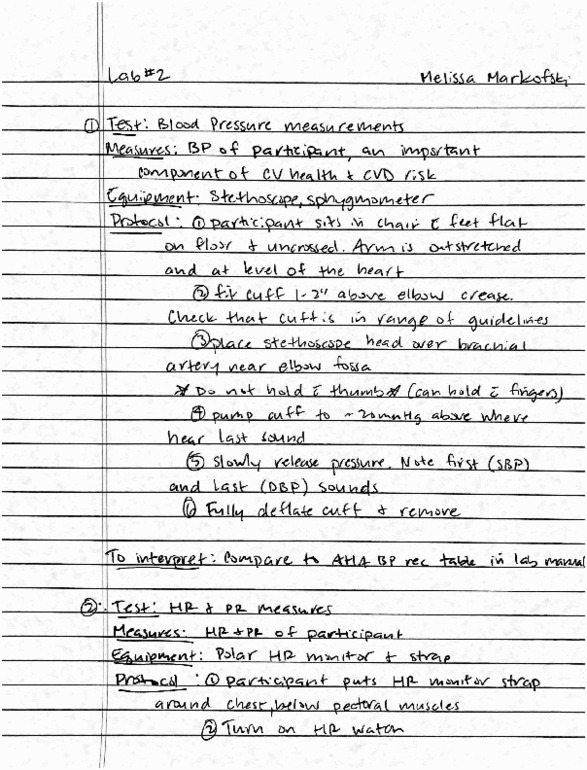 Lab #2 Melissa Markofski
① Test: Blood Pressure measurements
Measures: BP of participant, an important
component of CV health & CVD risk
Equipment: Stethoscope, sphygmometer
Protocol: ① participant sits in chair c̄ feet flat
on floor & uncrossed. Arm is outstretched
and at level of the heart
② fit cuff 1-2" above elbow crease.
Check that cuff is in range of guidelines
③ place stethoscope head over brachial
artery near elbow fossa
* Do not hold c̄ thumb * (can hold c̄ fingers)
④ pump cuff to ~20mmHg above where
hear last sound
⑤ Slowly release pressure. Note first (SBP)
and last (DBP) sounds
⑥ Fully deflate cuff & remove
To interpret: Compare to AHA BP rec table in lab manual
②. Test: HR & PR measures
Measures: HR & PR of participant
Equipment: Polar HR monitor & strap
Protocol: ① participant puts HR monitor strap
around chest, below pectoral muscles
② Turn on HR watch